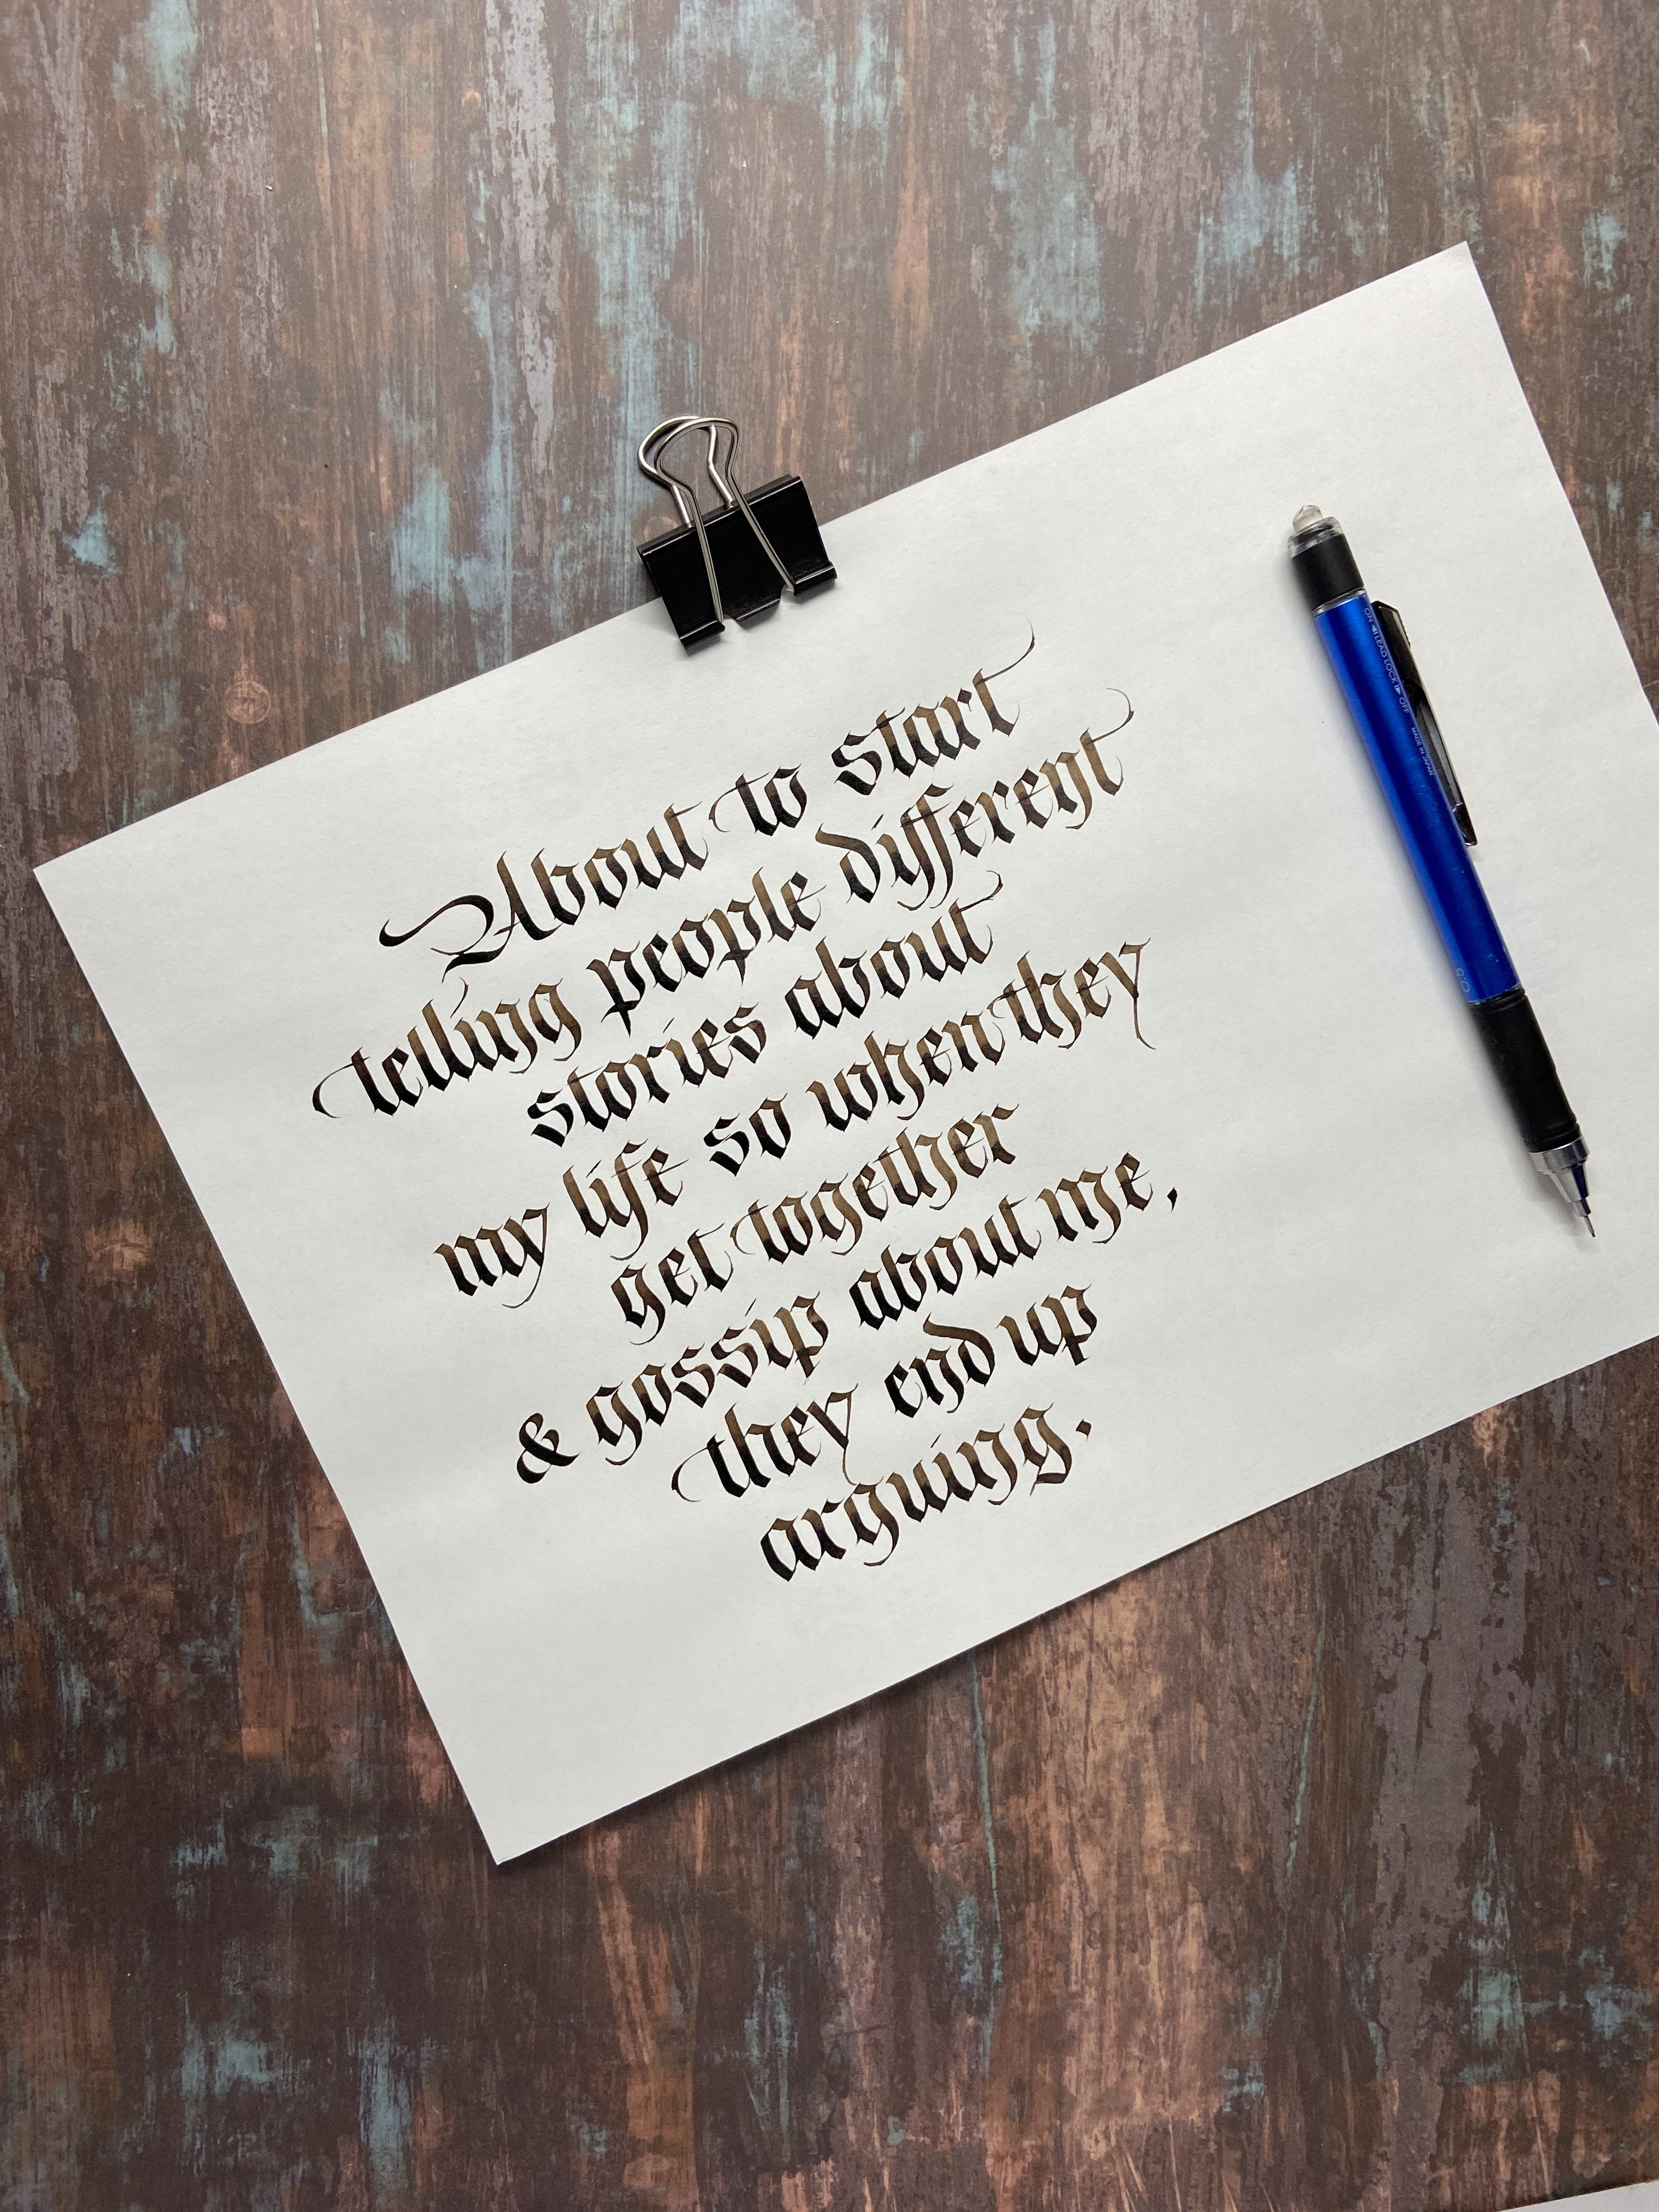 About to start
telling people different
stories about
my life so when they
get together
& gossip about me,
they end up
arguing.
ON ◀ LEAD LOCK ▶ OFF MADE IN JAPAN
0.5